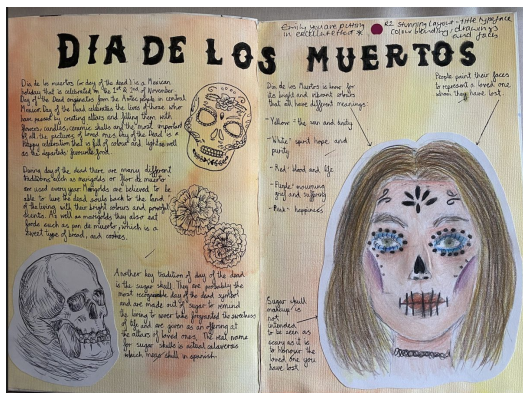 Emily you are putting
in excellent effort
R2 Stunning layout - title typeface,
colour blending, drawings
and facts
DIA DE LOS MUERTOS
Dia de los muertos (or day of the dead) is a Mexican
holiday that is celebrated on the 1st & 2nd of November.
Day of the dead originates from the Aztec people in central
Mexico. Day of the dead celebrates the lives of those who
have passed by creating altars and filling them with
flowers, candles, ceramic skulls and the most important
of all, the pictures of loved ones. Day of the dead is a
happy celebration that is full of colour and lights as well
as the departeds' favourite food.
During day of the dead there are many different
traditions such as marigolds or flor de muerto
are used every year. Marigolds are believed to be
able to lure the dead souls back to the land
of the living with their bright colours and powerful
scents. As well as marigolds they also eat
foods such as pan de muerto, which is a
sweet type of bread, and cookies.
Another key tradition of day of the dead
is the sugar skull. They are probably the
most recognisable day of the dead symbol
and are made out of sugar to remind
the living to never take forgranted the sweetness
of life and are given as an offering at
the altars of loved ones. The real name
for sugar skulls is actual calaveras
which means skull in spanish.
Dia de los Muertos is know for
its bright and vibrant colours
that all have different meanings:
- Yellow = the sun and unity
- White = spirit hope and
purity
- Red = blood and life
- Purple = mourning
grief and suffering
- Pink = happiness
People paint their faces
to represent a loved one
whom they have lost.
Sugar skull
makeup is
not
intended
to be seen as
scary as it is
to honour the
loved one you
have lost.